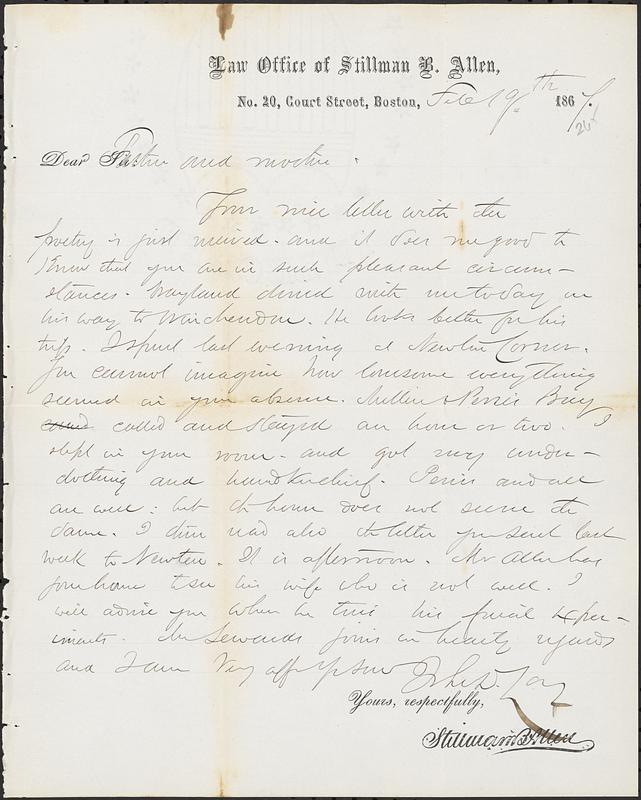 Law Office of Stillman B. Allen,
No. 20, Court Street, Boston, Feb 19th 1867.
Dear Father and mother.
Your nice letter with the
poetry is just received. and it does me good to
know that you are in such pleasant circum-
stances. Wayland dined with me today on
his way to Winchendon. He looks better for his
trip. I spent last evening at Newton Corner.
You cannot imagine how lonesome everything
seemed in your absence. Millie &
called and stayed an hour or two. I
slept in your room. and got my under-
clothing and handkerchief. and all
are well: but the house does not seem the
same. I then read also the letter you sent last
week to Newton. It is afternoon. Mr Allen has
gone home to see his wife who is not well. I
will advise you when he tries his experi-
ments. joins in hearty regards
and I am Very aff yr son
Yours, respectfully,
Stillman B. Allen